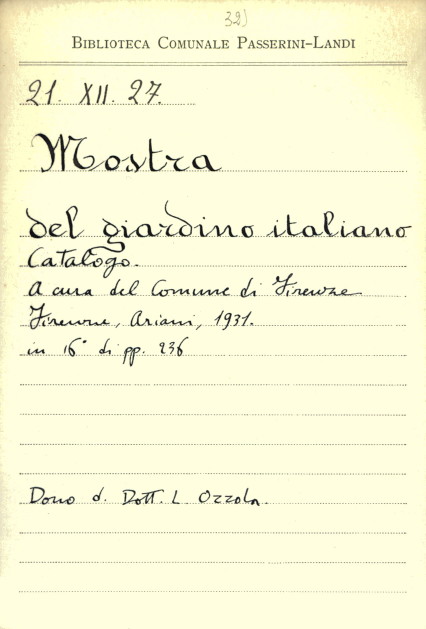 32)
BIBLIOTECA COMUNALE PASSERINI-LANDI
21. XII. 27.
Mostra
del giardino italiano
Catalogo.
A cura del Comune di Firenze
Firenze, Ariani, 1931.
in 16° di pp. 236
Dono d. Dott. L. Ozzola.